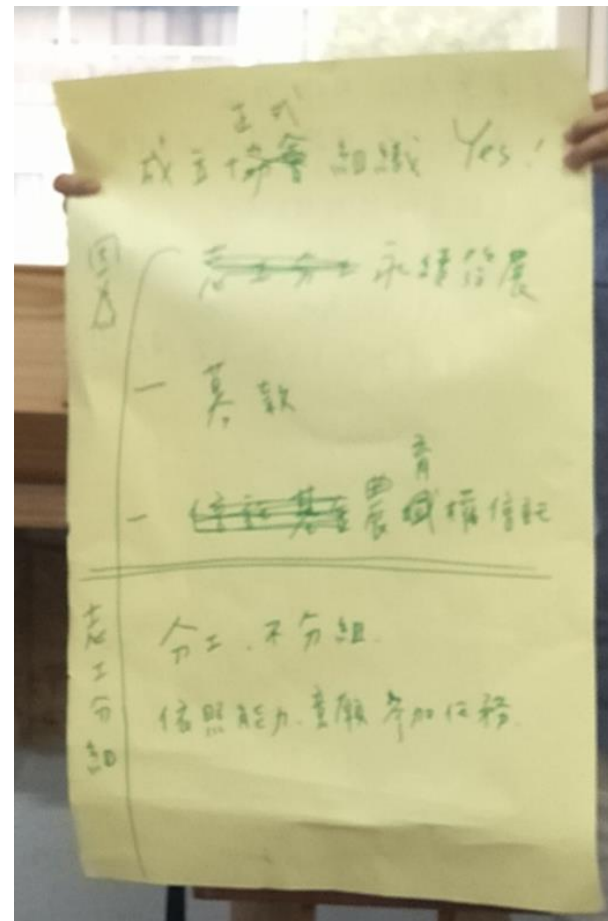 正式
成立協會組織 Yes!
志工分工 永續發展
一 募款
一 農 權信託
志工分組
分工、不分組.
依照能力、意願參加任務.